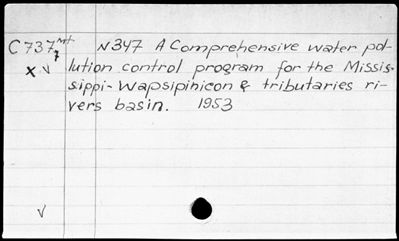 C737 Mt 7 N347 A Comprehensive water pol-
x √ lution control program for the Missis-
sippi-Wapsipinicon & tributaries ri-
vers basin. 1953
√